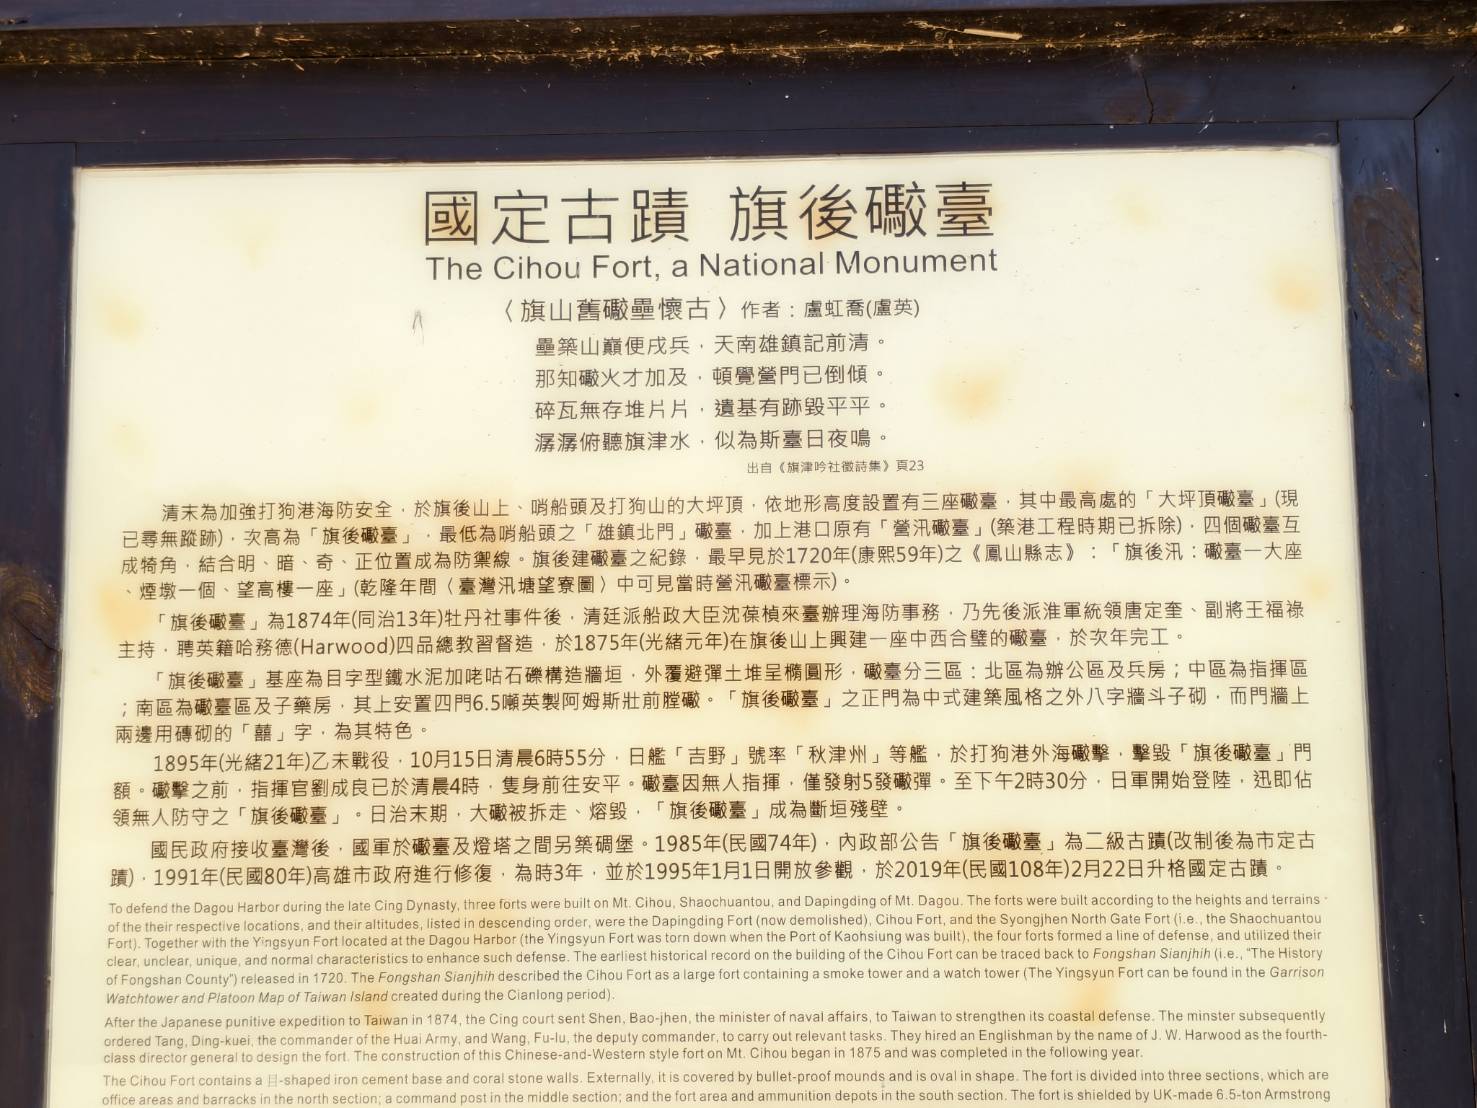 國定古蹟 旗後礮臺
The Cihou Fort, a National Monument
〈旗山舊礮壘懷古〉作者：盧虹喬(盧英)
壘築山巔便戍兵，天南雄鎮記前清。
那知礮火才加及，頓覺營門已倒傾。
碎瓦無存堆片片，遺基有跡毀平平。
潺潺俯聽旗津水，似為斯臺日夜鳴。
出自《旗津吟社徵詩集》頁23
清末為加強打狗港海防安全，於旗後山上、哨船頭及打狗山的大坪頂，依地形高度設置有三座礮臺，其中最高處的「大坪頂礮臺」(現
已尋無蹤跡)，次高為「旗後礮臺」，最低為哨船頭之「雄鎮北門」礮臺，加上港口原有「營汛礮臺」(築港工程時期已拆除)，四個礮臺互
成犄角，結合明、暗、奇、正位置成為防禦線。旗後建礮臺之紀錄，最早見於1720年(康熙59年)之《鳳山縣志》：「旗後汛：礮臺一大座
、煙墩一個、望高樓一座」(乾隆年間〈臺灣汛塘望寮圖〉中可見當時營汛礮臺標示)。
「旗後礮臺」為1874年(同治13年)牡丹社事件後，清廷派船政大臣沈葆楨來臺辦理海防事務，乃先後派淮軍統領唐定奎、副將王福祿
主持，聘英籍哈務德(Harwood)四品總教習督造，於1875年(光緒元年)在旗後山上興建一座中西合璧的礮臺，於次年完工。
「旗後礮臺」基座為目字型鐵水泥加咾咕石礫構造牆垣，外覆避彈土堆呈橢圓形，礮臺分三區：北區為辦公區及兵房；中區為指揮區
；南區為礮臺區及子藥房，其上安置四門6.5噸英製阿姆斯壯前膛礮。「旗後礮臺」之正門為中式建築風格之外八字牆斗子砌，而門牆上
兩邊用磚砌的「囍」字，為其特色。
1895年(光緒21年)乙未戰役，10月15日清晨6時55分，日艦「吉野」號率「秋津州」等艦，於打狗港外海礮擊，擊毀「旗後礮臺」門
額。礮擊之前，指揮官劉成良已於清晨4時，隻身前往安平。礮臺因無人指揮，僅發射5發礮彈。至下午2時30分，日軍開始登陸，迅即佔
領無人防守之「旗後礮臺」。日治末期，大礮被拆走、熔毀，「旗後礮臺」成為斷垣殘壁。
國民政府接收臺灣後，國軍於礮臺及燈塔之間另築碉堡。1985年(民國74年)，內政部公告「旗後礮臺」為二級古蹟(改制後為市定古
蹟)，1991年(民國80年)高雄市政府進行修復，為時3年，並於1995年1月1日開放參觀，於2019年(民國108年)2月22日升格國定古蹟。
To defend the Dagou Harbor during the late Cing Dynasty, three forts were built on Mt. Cihou, Shaochuantou, and Dapingding of Mt. Dagou. The forts were built according to the heights and terrains
of the their respective locations, and their altitudes, listed in descending order, were the Dapingding Fort (now demolished), Cihou Fort, and the Syongjhen North Gate Fort (i.e., the Shaochuantou
Fort). Together with the Yingsyun Fort located at the Dagou Harbor (the Yingsyun Fort was torn down when the Port of Kaohsiung was built), the four forts formed a line of defense, and utilized their
clear, unclear, unique, and normal characteristics to enhance such defense. The earliest historical record on the building of the Cihou Fort can be traced back to Fongshan Sianjhih (i.e., "The History
of Fongshan County") released in 1720. The Fongshan Sianjhih described the Cihou Fort as a large fort containing a smoke tower and a watch tower (The Yingsyun Fort can be found in the Garrison
Watchtower and Platoon Map of Taiwan Island created during the Cianlong period).
After the Japanese punitive expedition to Taiwan in 1874, the Cing court sent Shen, Bao-jhen, the minister of naval affairs, to Taiwan to strengthen its coastal defense. The minster subsequently
ordered Tang, Ding-kuei, the commander of the Huai Army, and Wang, Fu-lu, the deputy commander, to carry out relevant tasks. They hired an Englishman by the name of J. W. Harwood as the fourth-
class director general to design the fort. The construction of this Chinese-and-Western style fort on Mt. Cihou began in 1875 and was completed in the following year.
The Cihou Fort contains a 目-shaped iron cement base and coral stone walls. Externally, it is covered by bullet-proof mounds and is oval in shape. The fort is divided into three sections, which are
office areas and barracks in the north section; a command post in the middle section; and the fort area and ammunition depots in the south section. The fort is shielded by UK-made 6.5-ton Armstrong